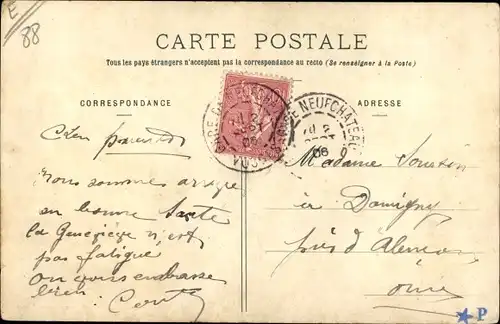 E
88
CARTE POSTALE
Tous les pays étrangers n'acceptent pas la correspondance au recto (Se renseigner à la Poste.)
CORRESPONDANCE
ADRESSE
GARE DE NEUFCHATEAU
VOSGES
GARE DE NEUFCHATEAU
06
Chers parents
nous sommes
en bonne Santé
la n'est
pas fatigué
on vous embrasse
bien
Madame
à Damigny
près d'Alençon
Orne
★P